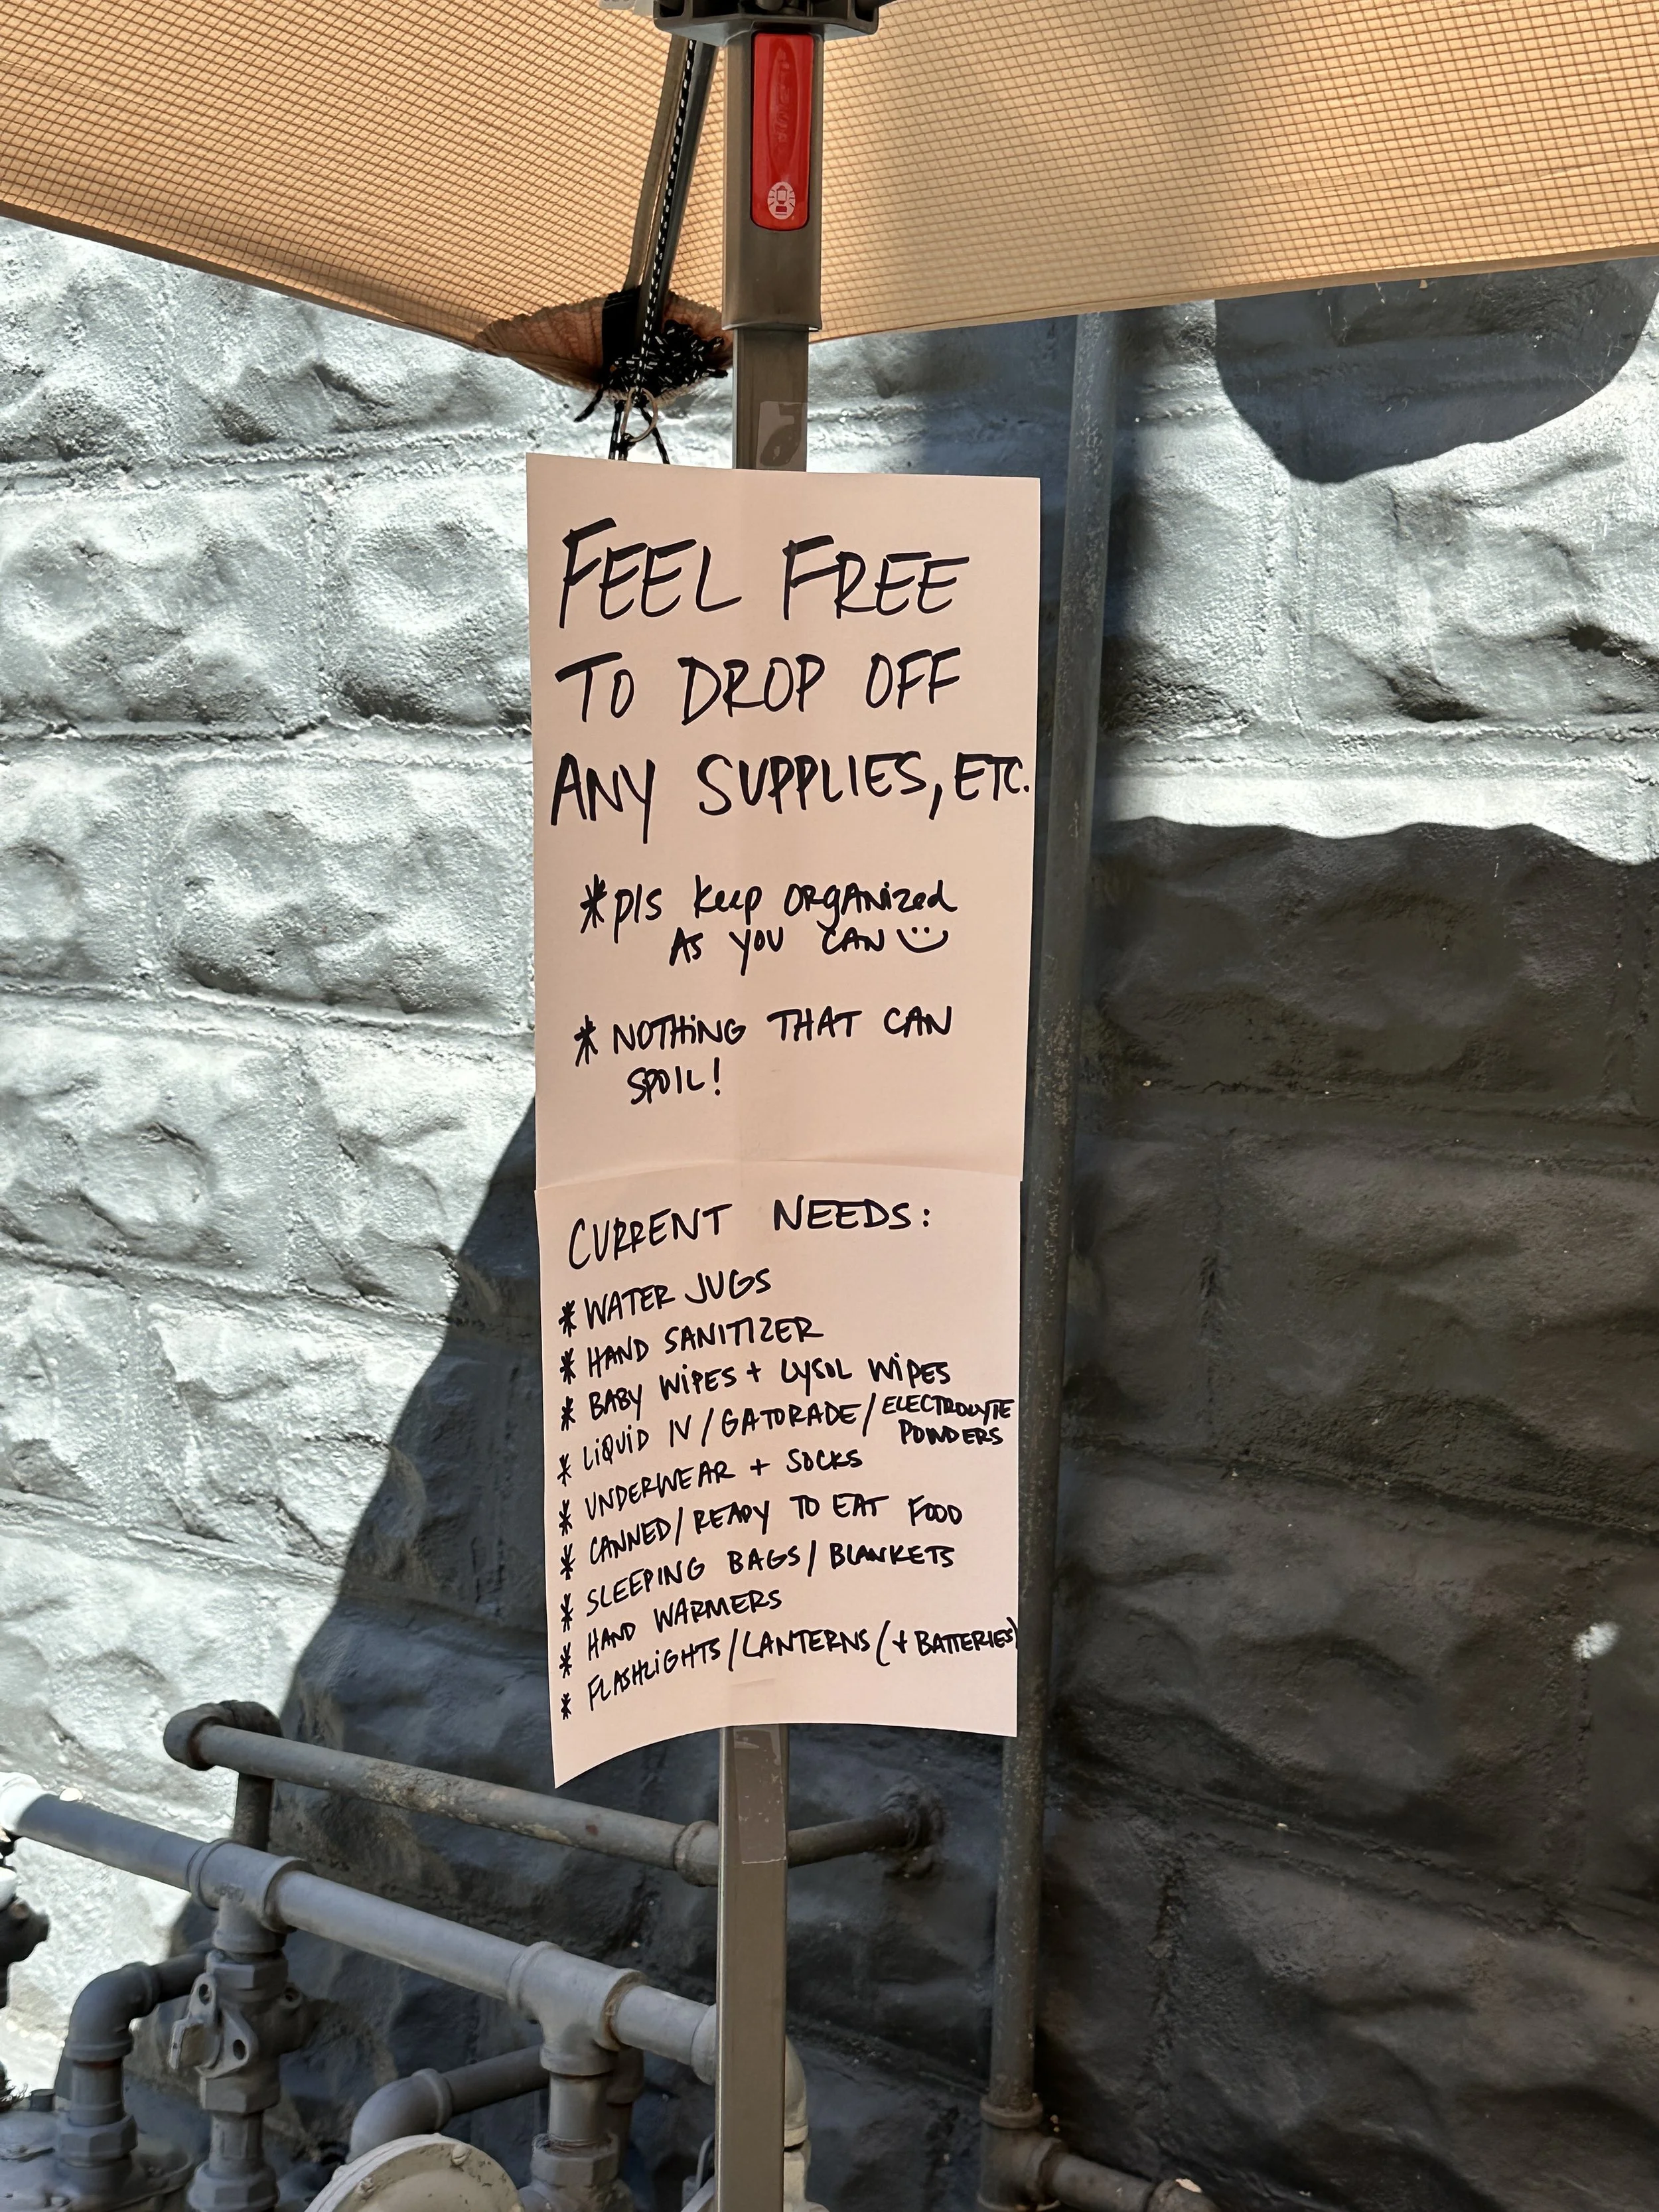 FEEL FREE
TO DROP OFF
ANY SUPPLIES, ETC.
* pls keep ORgANized
AS YOU CAN
* NOTHiNG THAT CAN
SPOIL!
CURRENT NEEDS:
* WATER JUGS
* HAND SANITIZER
* BABY WiPES + LYSOL WiPES
* LiQUiD IV / GATORADE / ELECTROLYTE
POWDERS
* UNDERWEAR + SOCKS
* CANNED / READY TO EAT FOOD
* SLEEPING BAGS / BLANKETS
* HAND WARMERS
* FLASHLiGHTS / LANTERNS (+ BATTERIES)